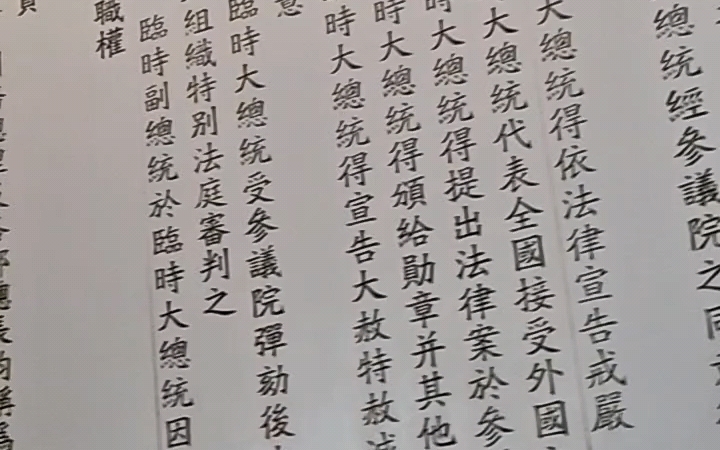 總統經參議院之同
大總統得依法律宣告戒嚴
大總統代表全國接受外國
時大總統得提出法律案於參
時大總統得頒給勛章并其他
時大總統得宣告大赦特赦減
意
臨時大總統受參議院彈劾後
組織特別法庭審判之
臨時副總統於臨時大總統因
職權
員
總長均稱爲